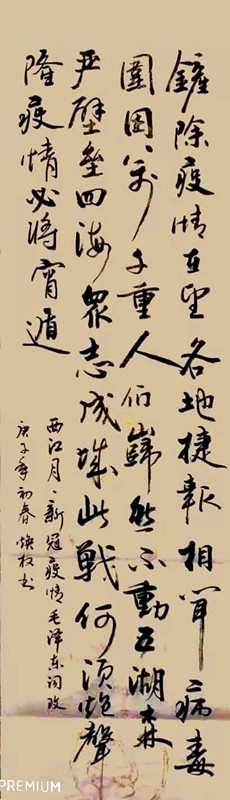 鏟除疫情在望各地捷報相聞病毒
圍困萬千重人们巋然不動五湖森
严壁壘四海眾志成城此戰何須炮聲
隆疫情必将宵遁
西江月、新冠疫情毛泽东词改
庚子年初春焕权书
PREMIUM